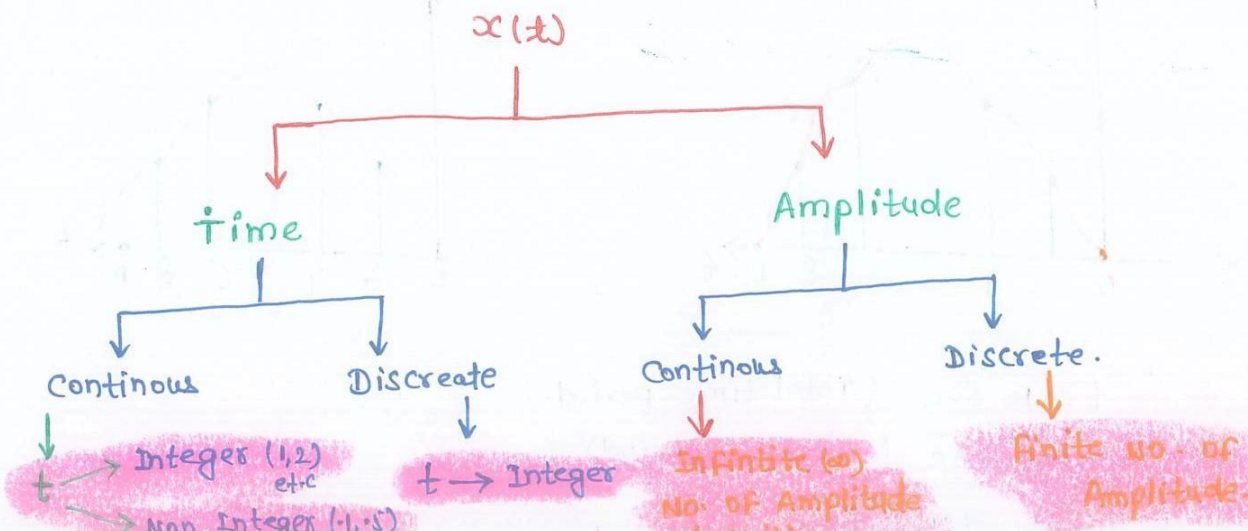 x(t)
Time
Amplitude
Continous
Discreate
Continous
Discrete.
t → Integer (1,2)
etc
Non Integer (.1,.5)
t → Integer
Infintite (∞)
No. of Amplitude
finite No. of
Amplitude.